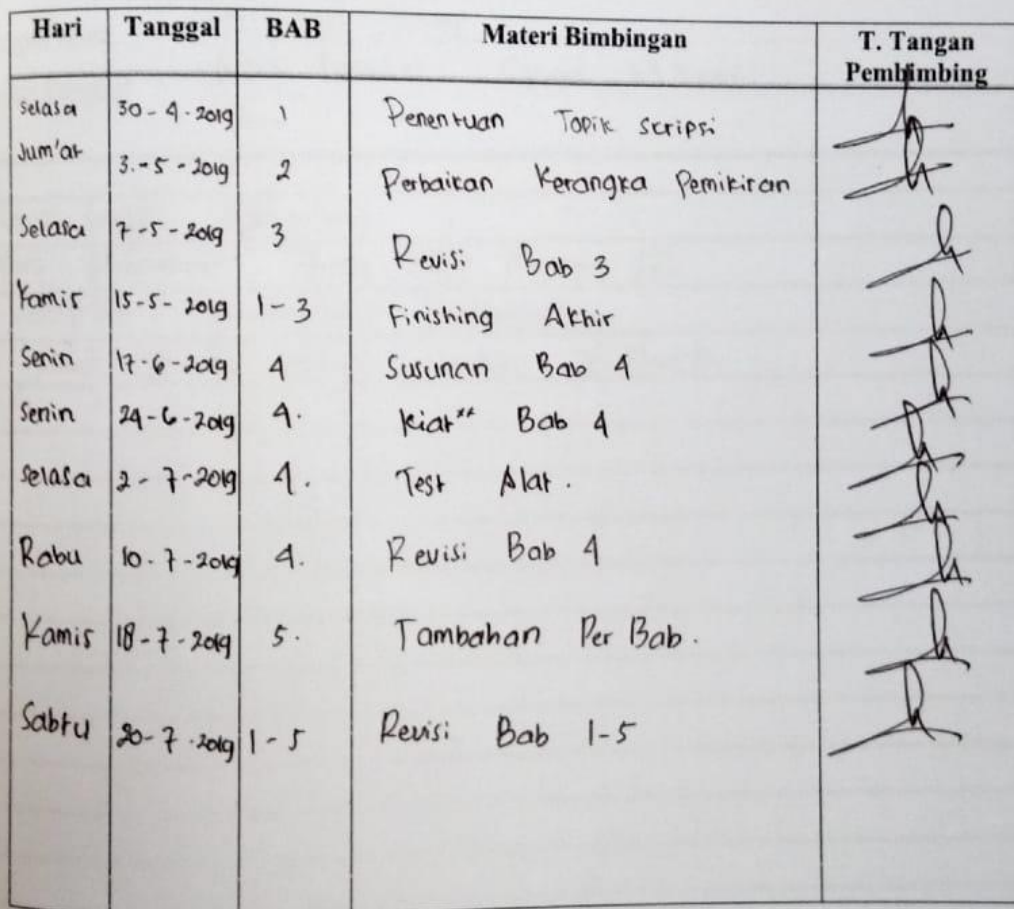 Hari Tanggal BAB Materi Bimbingan T. Tangan
Pembimbing
Selasa 30-4-2019 1 Penentuan Topik scripsi
Jum'at 3.-5-2019 2 Perbaikan Kerangka Pemikiran
Selasa 7-5-2019 3 Revisi Bab 3
Kamis 15-5-2019 1-3 Finishing Akhir
Senin 17-6-2019 4 Susunan Bab 4
Senin 24-6-2019 4. Kiat** Bab 4
Selasa 2-7-2019 4. Test Alat.
Rabu 10-7-2019 4. Revisi Bab 4
Kamis 18-7-2019 5. Tambahan Per Bab.
Sabtu 20-7-2019 1-5 Revisi Bab 1-5